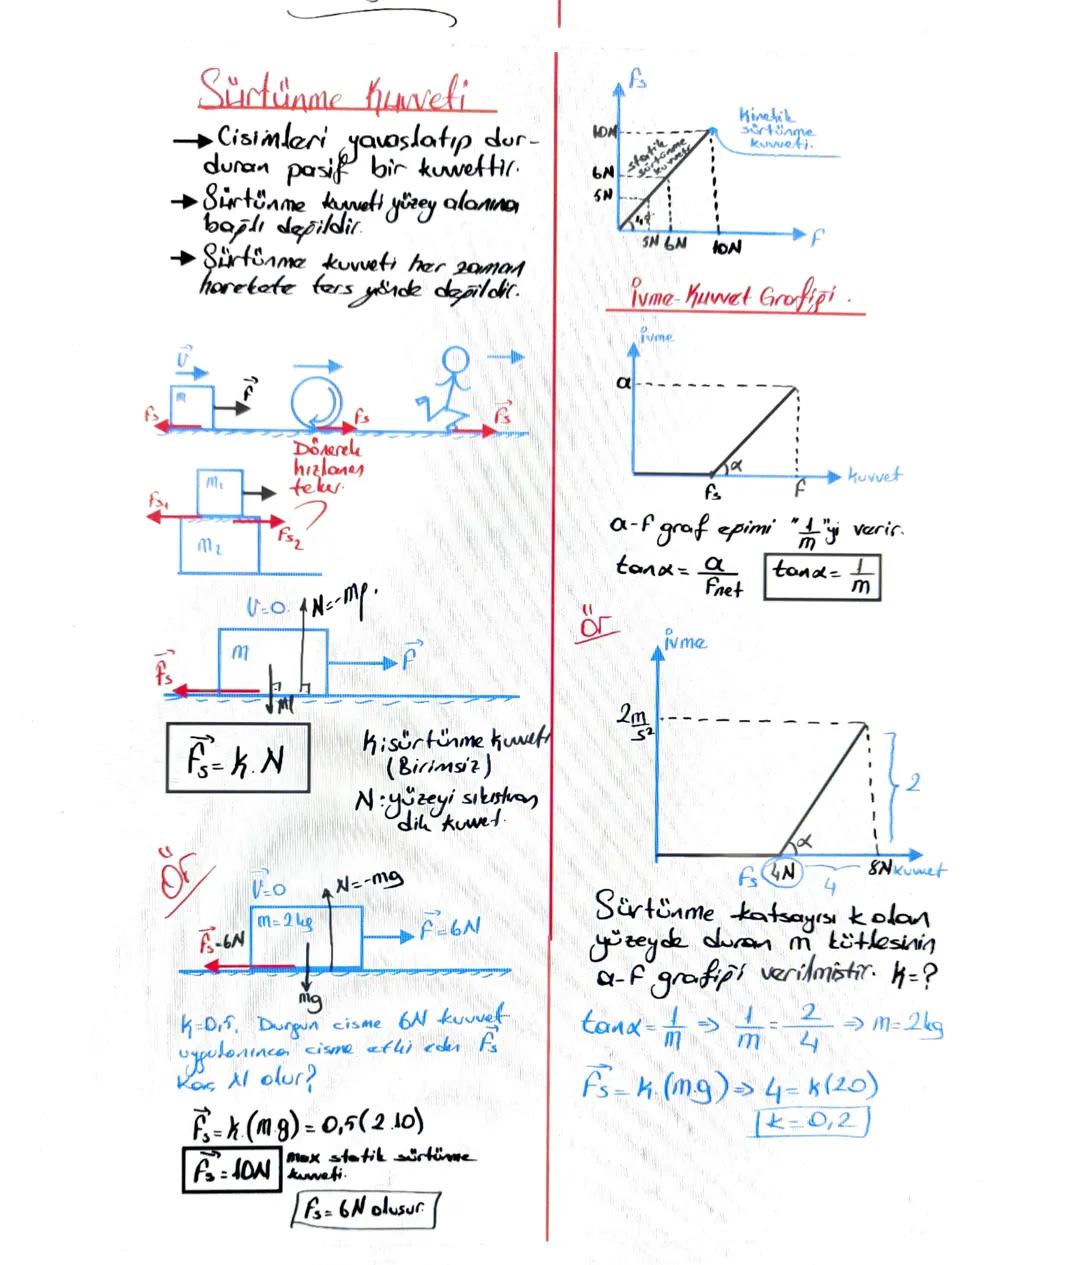 Sürtünme Kuvveti
→ Cisimleri yavaşlatıp dur-
duran pasif bir kuvvettir.
→ Sürtünme kuvveti yüzey alanına
bağlı değildir.
→ Sürtünme kuvveti her zaman
harekete ters yönde değildir.
V
m
F
fs
fs
Fs
Dönerek
hızlanan
teker.
m₁
fs₁
Fs₂
m₂
V=0
N=-mg
m
F
Fs
Fs = k.N
K:sürtünme kuvveti
(Birimsiz)
N:yüzeyi sıkıştıran
dik kuvvet.
Ör
V=0
N=-mg
m=2kg
F=6N
Fs=6N
mg
k=0,5. Durgun cisme 6N kuvvet
uygulanınca cisme etki eden Fs
Kaç N olur?
Fs=k.(m.g)=0,5(2.10)
Fs=10N
max statik sürtünme
kuvveti.
fs=6N oluşur.
Fs
10N
6N
5N
statik
sürtünme
kuvveti
Kinetik
sürtünme
kuvveti.
5N 6N 10N
F
İvme-Kuvvet Grafiği.
İvme
a
α
kuvvet
fs
F
a-F graf eğimi "1/m"yi verir.
tanα = a/Fnet
tanα = 1/m
Ör
İvme
2m/s²
2
α
Fs 4N
4
8N kuvvet
Sürtünme katsayısı k olan
yüzeyde duran m kütlesinin
a-F grafiği verilmiştir. k=?
tanα = 1/m ⇒ 1/m = 2/4 ⇒ m=2kg
Fs = k.(m.g) ⇒ 4=k(20)
k=0,2